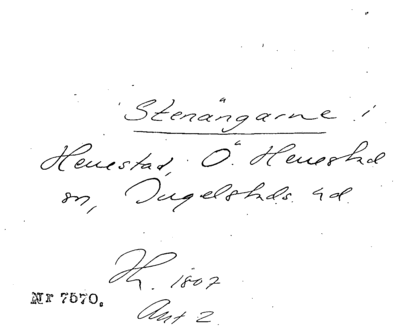 Stenängarne i
Herrestad, Ö. Herrestad
sn, Ingelstads hd.
Hh. 1807
Akt 2
Nr 7570.